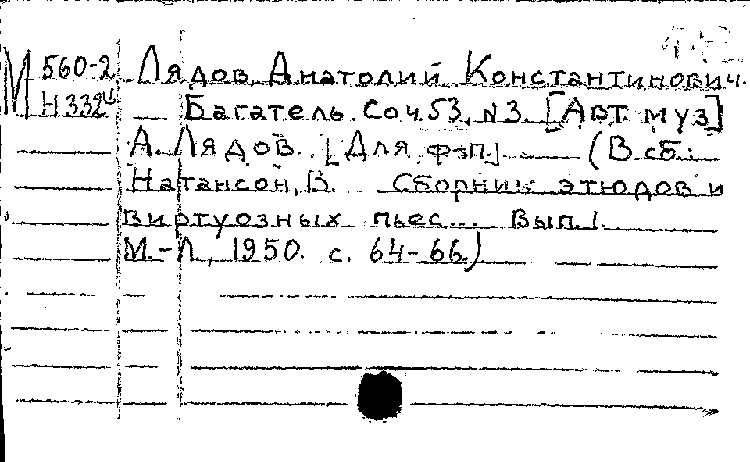 М 560-2 Лядов, Анатолий Константинович.
Н 332 Багатель. Соч. 53, N 3. [Авт. муз]
А. Лядов. [Для ф-п.] (В сб.:
Натансон, В. Сборник этюдов и
виртуозных пьес... Вып. 1.
М.-Л., 1950. с. 64-66)